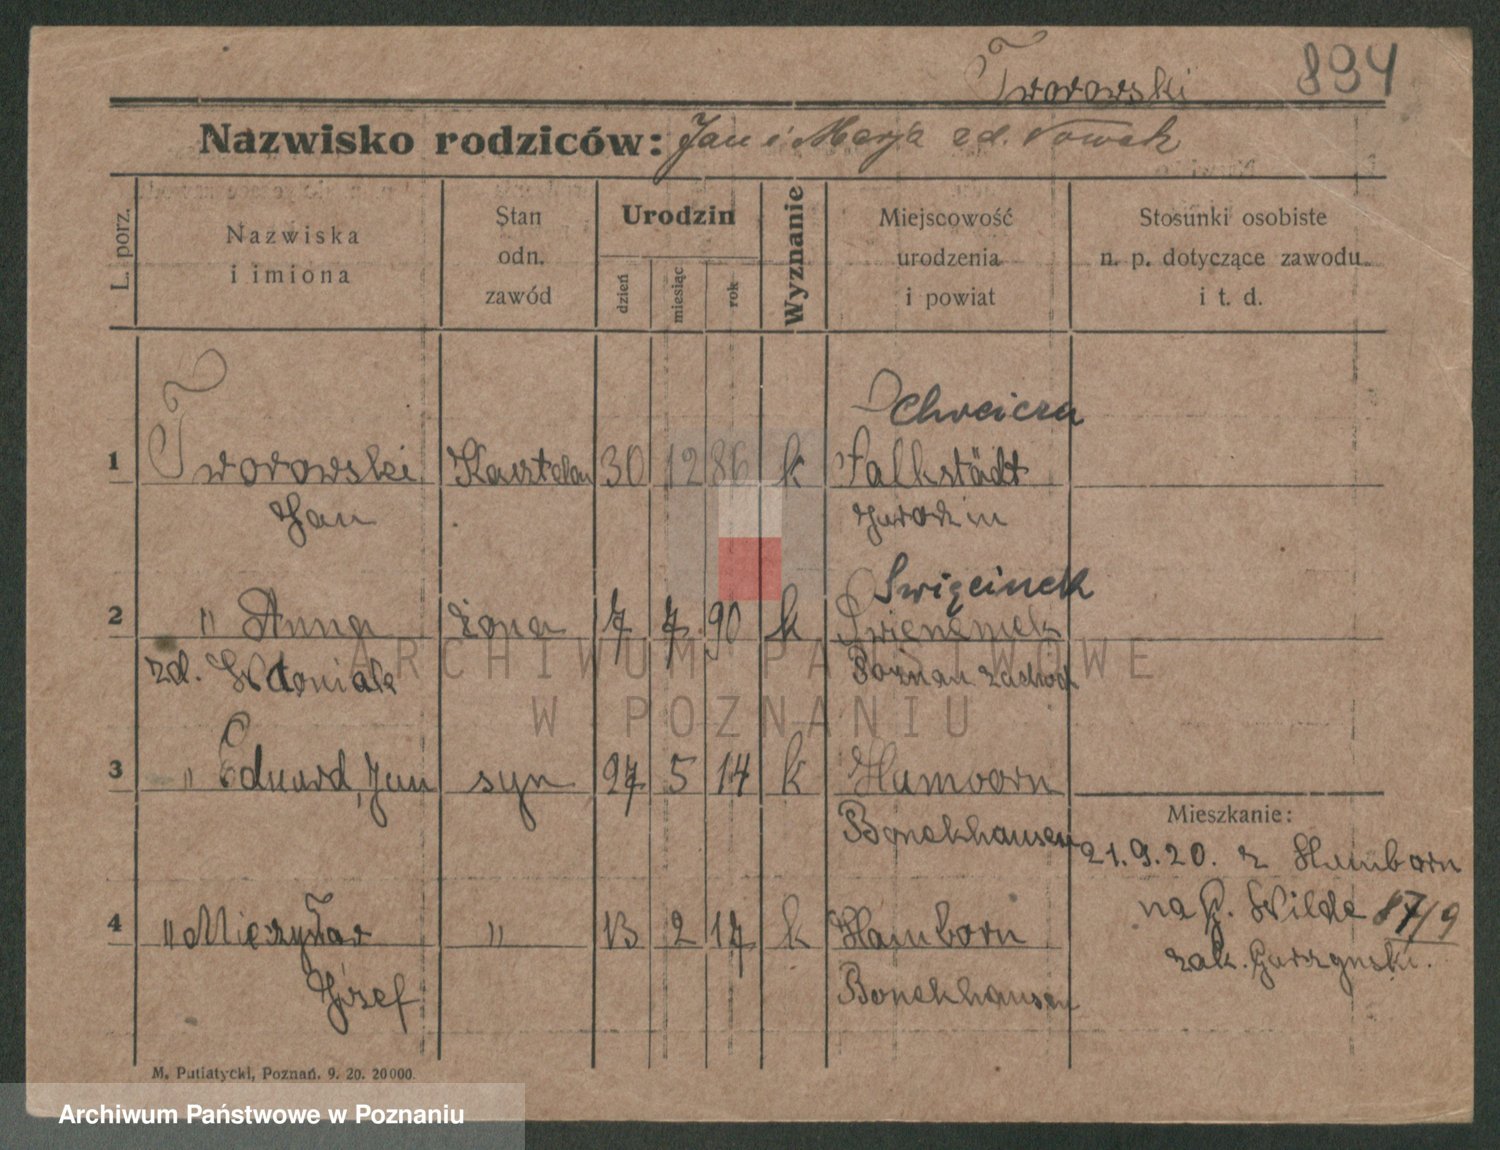 Tworowski 894
Nazwisko rodziców: Jan i Marja zd. Nowak
L. porz.
Nazwiska
i imiona
Stan
odn.
zawód
Urodzin
dzień
miesiąc
rok
Wyznanie
Miejscowość
urodzenia
i powiat
Stosunki osobiste
n. p. dotyczące zawodu
i t. d.
Chwicza
1 Tworowski Kasztelan 30 12 86 k Falkstädt
Jan Jarozin
Swięcinek
2 " Anna żona 7 7 90 k
zd. Wdoniak Poznan zachod
3 " Eduard, Jan syn 27 5 14 k Hamborn
Bonekhausen
Mieszkanie:
21.9.20. z Hamborn
na G. Wilde 87/9
zak.
4 " Mieczysław " 13 2 17 k Hamborn
Józef Bonekhausen
M. Putiatycki, Poznań. 9. 20. 20000.
ARCHIWUM PAŃSTWOWE
W POZNANIU
Archiwum Państwowe w Poznaniu